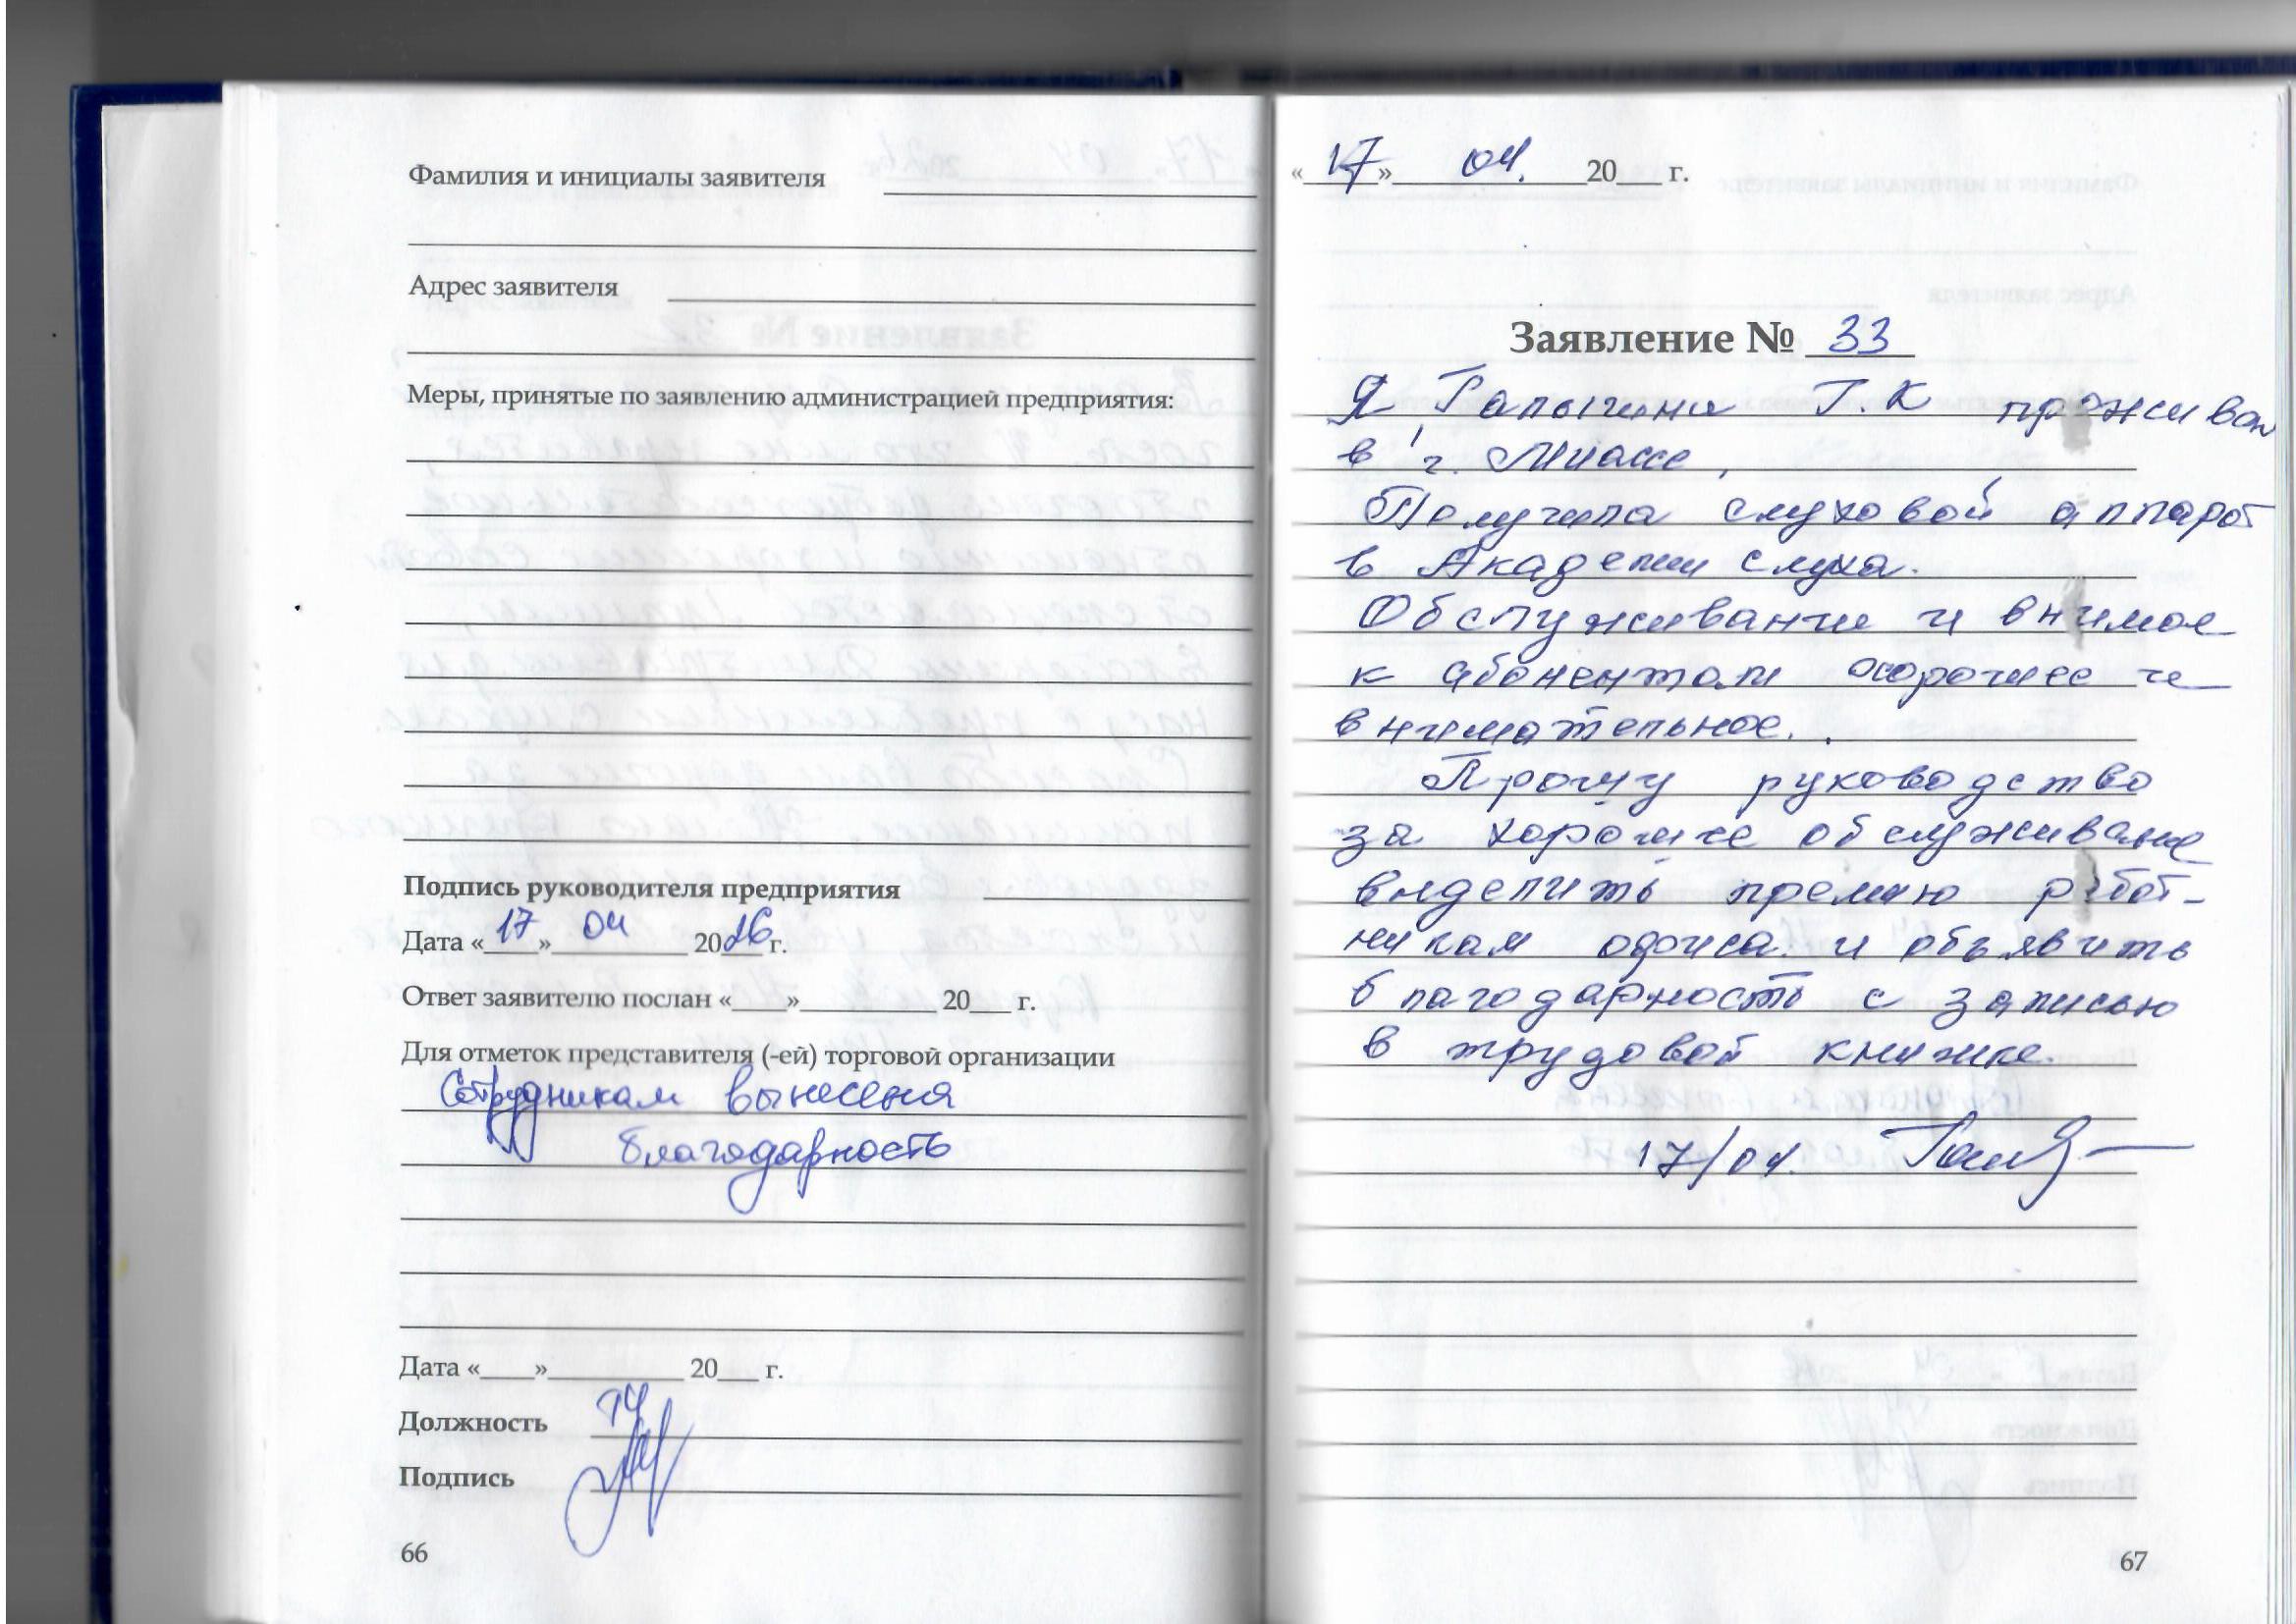 Фамилия и инициалы заявителя
Адрес заявителя
Меры, принятые по заявлению администрацией предприятия:
Подпись руководителя предприятия
Дата «17» 04 2026 г.
Ответ заявителю послан «    »    20    г.
Для отметок представителя (-ей) торговой организации
Сотрудникам вынесена
благодарность
Дата «    »    20    г.
Должность
Подпись
66
«17» 04. 20    г.
Заявление № 33
Я Г.К прожива
в г. Миассе,
Получила слуховой аппарат
в Академии слуха.
Обслуживание и
к абонентам хорошее и
внимательное.
Прошу руководство
за хорошее обслуживание
выделить премию работ-
никам офиса и объявить
благодарность с записью
в трудовой книжке.
17/04.
67